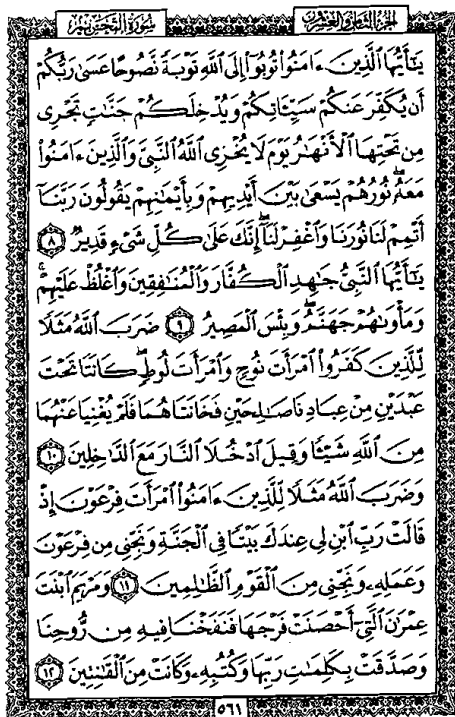 سورة التحريم الجزء الثامن والعشرون
يَٰٓأَيُّهَا ٱلَّذِينَ ءَامَنُوا۟ تُوبُوٓا۟ إِلَى ٱللَّهِ تَوْبَةً نَّصُوحًا عَسَىٰ رَبُّكُمْ
أَن يُكَفِّرَ عَنكُمْ سَيِّـَٔاتِكُمْ وَيُدْخِلَكُمْ جَنَّٰتٍ تَجْرِى
مِن تَحْتِهَا ٱلْأَنْهَٰرُ يَوْمَ لَا يُخْزِى ٱللَّهُ ٱلنَّبِىَّ وَٱلَّذِينَ ءَامَنُوا۟
مَعَهُۥ نُورُهُمْ يَسْعَىٰ بَيْنَ أَيْدِيهِمْ وَبِأَيْمَٰنِهِمْ يَقُولُونَ رَبَّنَآ
أَتْمِمْ لَنَا نُورَنَا وَٱغْفِرْ لَنَآ إِنَّكَ عَلَىٰ كُلِّ شَىْءٍ قَدِيرٌ ٨
يَٰٓأَيُّهَا ٱلنَّبِىُّ جَٰهِدِ ٱلْكُفَّارَ وَٱلْمُنَٰفِقِينَ وَٱغْلُظْ عَلَيْهِمْ
وَمَأْوَىٰهُمْ جَهَنَّمُ وَبِئْسَ ٱلْمَصِيرُ ٩ ضَرَبَ ٱللَّهُ مَثَلًا
لِّلَّذِينَ كَفَرُوا۟ ٱمْرَأَتَ نُوحٍ وَٱمْرَأَتَ لُوطٍ كَانَتَا تَحْتَ
عَبْدَيْنِ مِنْ عِبَادِنَا صَٰلِحَيْنِ فَخَانَتَاهُمَا فَلَمْ يُغْنِيَا عَنْهُمَا
مِنَ ٱللَّهِ شَيْـًٔا وَقِيلَ ٱدْخُلَا ٱلنَّارَ مَعَ ٱلدَّٰخِلِينَ ١٠
وَضَرَبَ ٱللَّهُ مَثَلًا لِّلَّذِينَ ءَامَنُوا۟ ٱمْرَأَتَ فِرْعَوْنَ إِذْ
قَالَتْ رَبِّ ٱبْنِ لِى عِندَكَ بَيْتًا فِى ٱلْجَنَّةِ وَنَجِّنِى مِن فِرْعَوْنَ
وَعَمَلِهِۦ وَنَجِّنِى مِنَ ٱلْقَوْمِ ٱلظَّٰلِمِينَ ١١ وَمَرْيَمَ ٱبْنَتَ
عِمْرَٰنَ ٱلَّتِىٓ أَحْصَنَتْ فَرْجَهَا فَنَفَخْنَا فِيهِ مِن رُّوحِنَا
وَصَدَّقَتْ بِكَلِمَٰتِ رَبِّهَا وَكُتُبِهِۦ وَكَانَتْ مِنَ ٱلْقَٰنِتِينَ ١٢
٥٦١